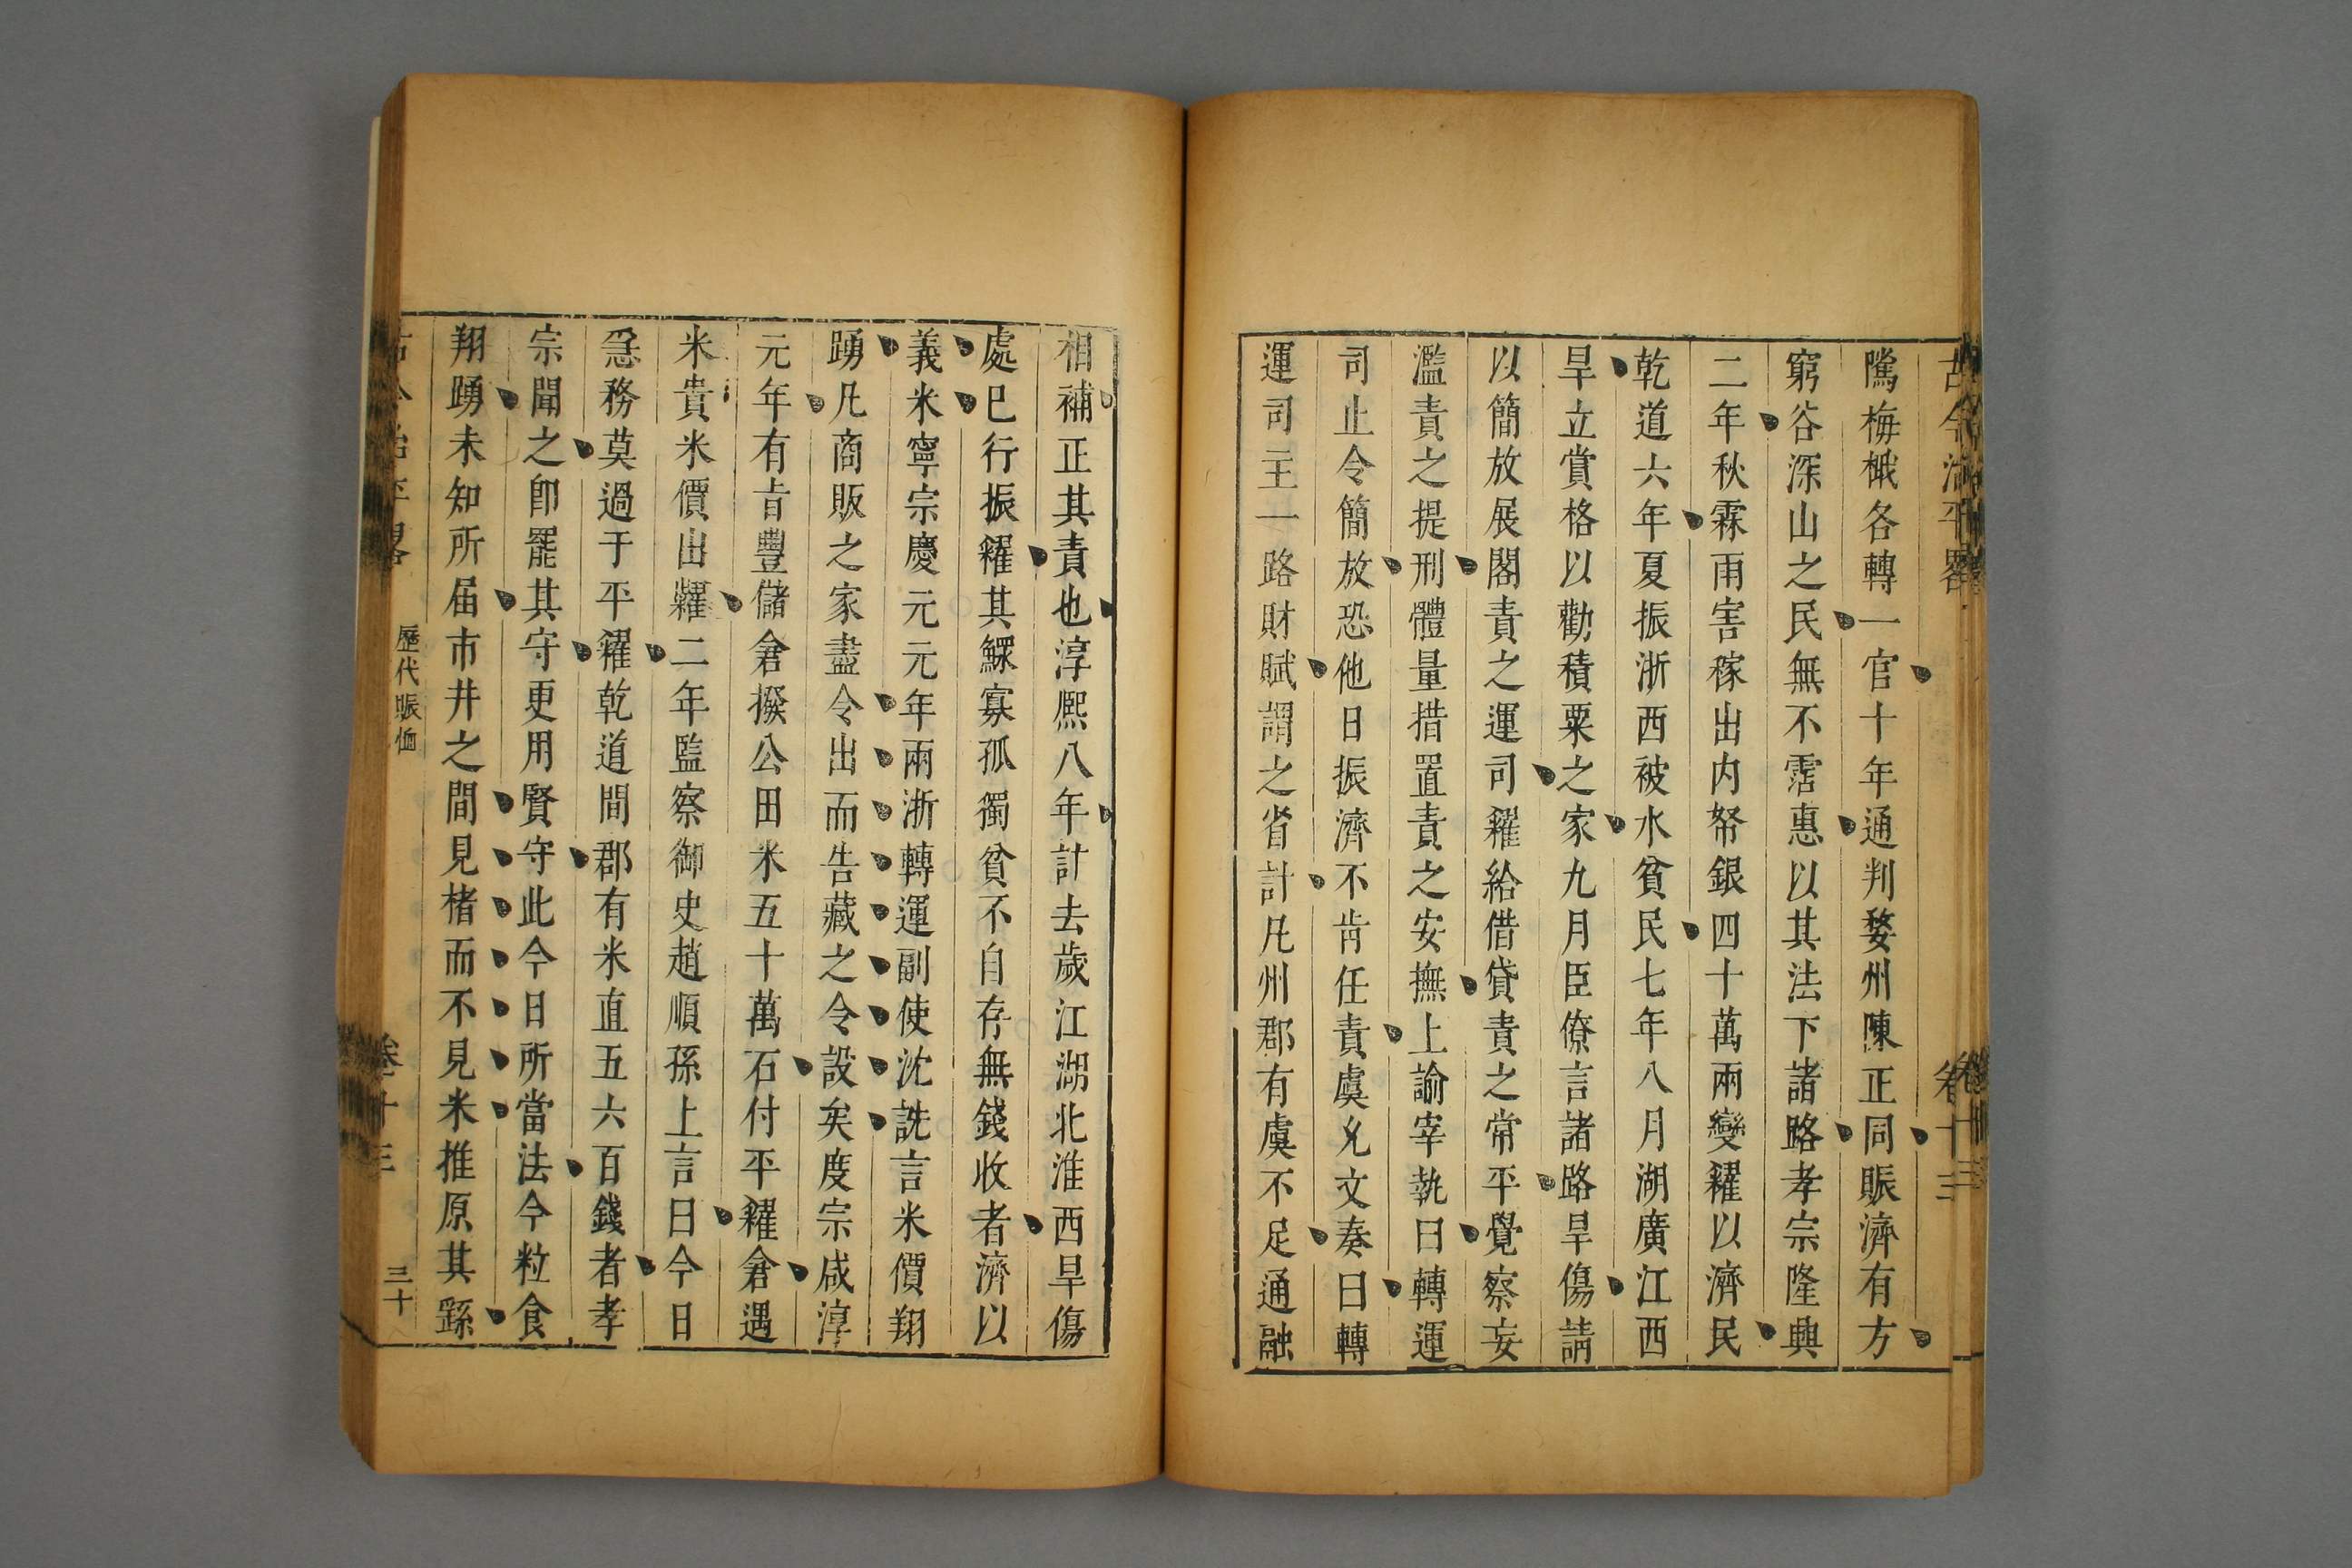 古今治平畧
卷十三
隲梅櫟各轉一官十年通判婺州陳正同賑濟有方
窮谷深山之民無不霑惠以其法下諸路孝宗隆興
二年秋霖雨害稼出内帑銀四十萬兩變糴以濟民
乾道六年夏振浙西被水貧民七年八月湖廣江西
旱立賞格以勸積粟之家九月臣僚言諸路旱傷請
以簡放展閣責之運司糴給借貸責之常平覺察妄
濫責之提刑體量措置責之安撫上諭宰執曰轉運
司止令簡放恐他日振濟不肯任責虞允文奏曰轉
運司主一路財賦謂之省計凡州郡有虞不足通融
相補正其責也淳熙八年計去歲江湖北淮西旱傷
處已行振糴其鰥寡孤獨貧不自存無錢收者濟以
義米寧宗慶元元年兩浙轉運副使沈詵言米價翔
踴凡商販之家盡令出而告藏之令設矣度宗咸淳
元年有旨豐儲倉撥公田米五十萬石付平糴倉遇
米貴米價出糶二年監察御史趙順孫上言曰今日
急務莫過于平糴乾道間郡有米直五六百錢者孝
宗聞之卽罷其守更用賢守此今日所當法今粒食
翔踴未知所届市井之間見楮而不見米推原其繇
古今治平畧
歷代賑恤
卷十三
三十